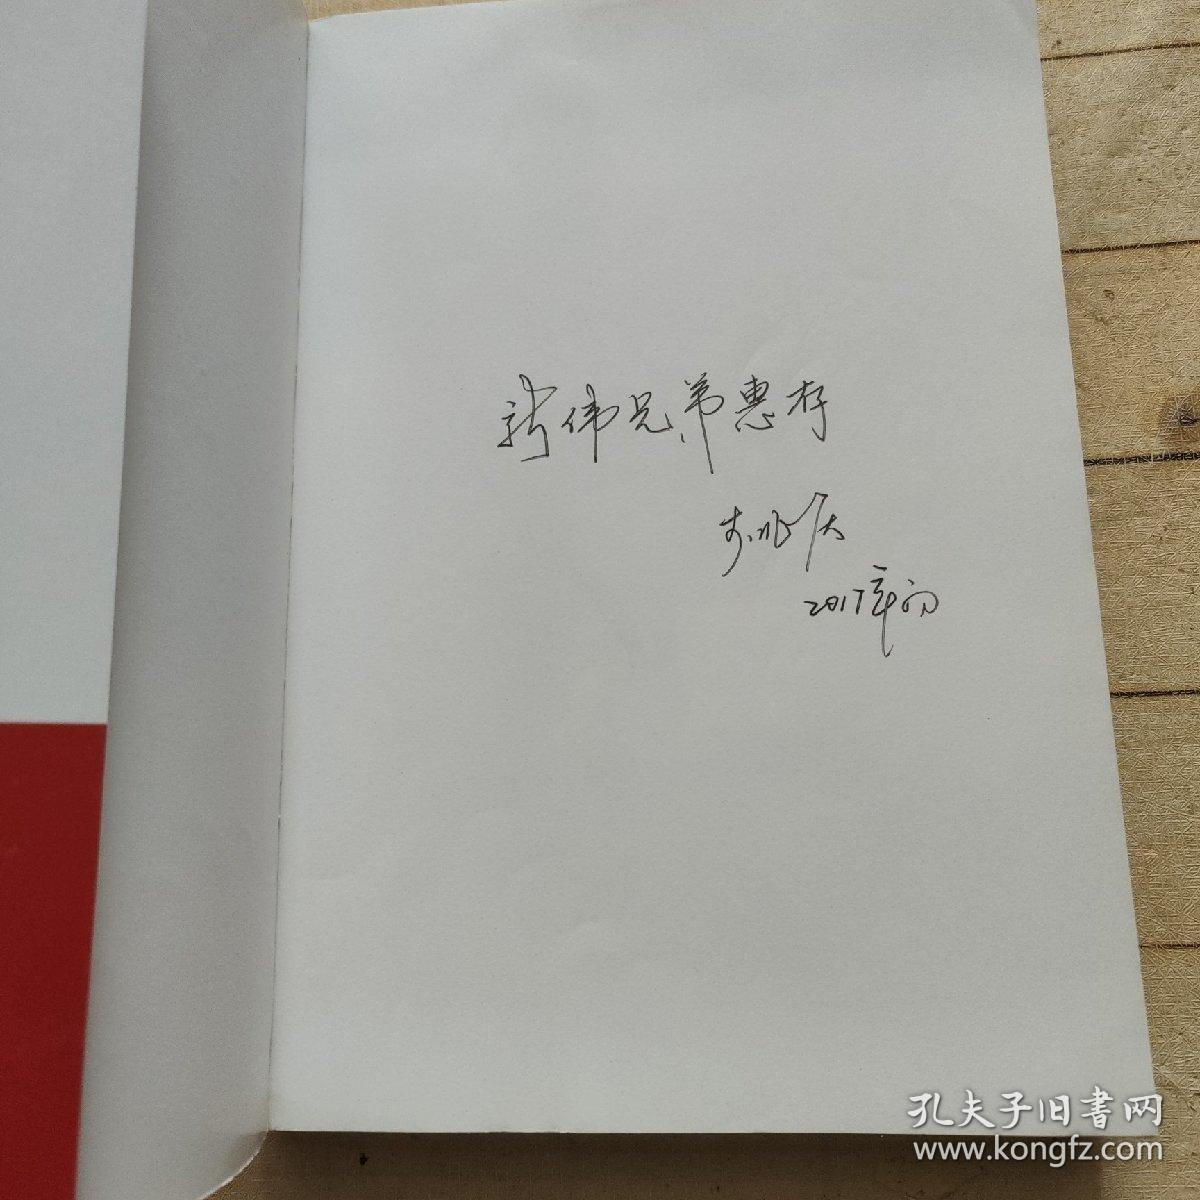 新伟兄弟惠存
李兆庆
2017年初
孔夫子旧書网
www.kongfz.com